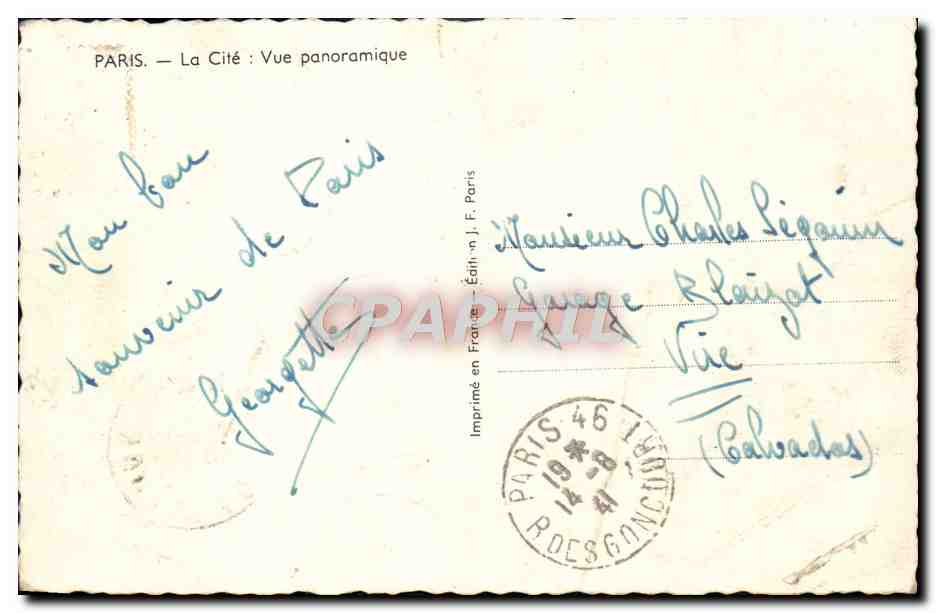 PARIS. — La Cité : Vue panoramique
Mon bon
souvenir de Paris
Georgette
Imprimé en France - Édition J. F. Paris
Monsieur Charles Ségouin
Garage Blaizot
Vire
(Calvados)
PARIS 46
19 * 14 -8 41
R DES GONCOURT
CPAPHIL